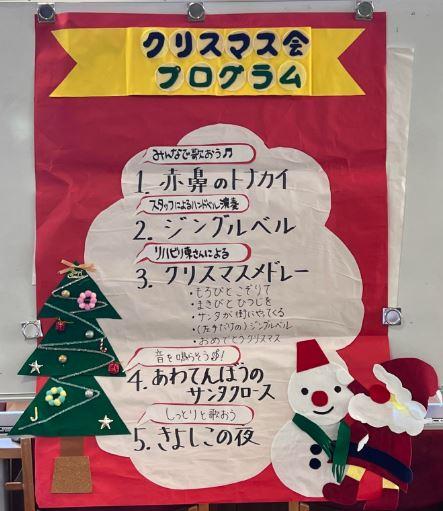 クリスマス会
プログラム
みんなで歌おう♬
1. 赤鼻のトナカイ
スタッフによるハンドベル演奏
2. ジングルベル
リハビリ東さんによる
3. クリスマスメドレー
・もろびと こぞりて
・まきびと ひつじを
・サンタが街にやってくる
・(たきだけの) ジングルベル
・おめでとうクリスマス
音を鳴らそう!
4. あわてんぼうの
サンタクロース
しっとりと歌おう
5. きよしこの夜
J